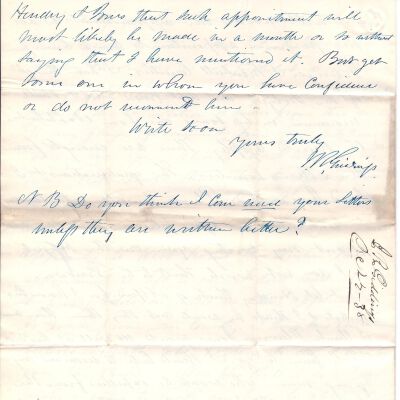 Hendry & Sons that such appointment will
most likely be made in a month or so without
saying that I have mentioned it. But get
some one in whom you have confidence
or do not recommend him.
Write soon
yours truly
J R Giddings
N B Do you think I can read your letters
unless they are written better?
J R Giddings
Dec 27 - 38